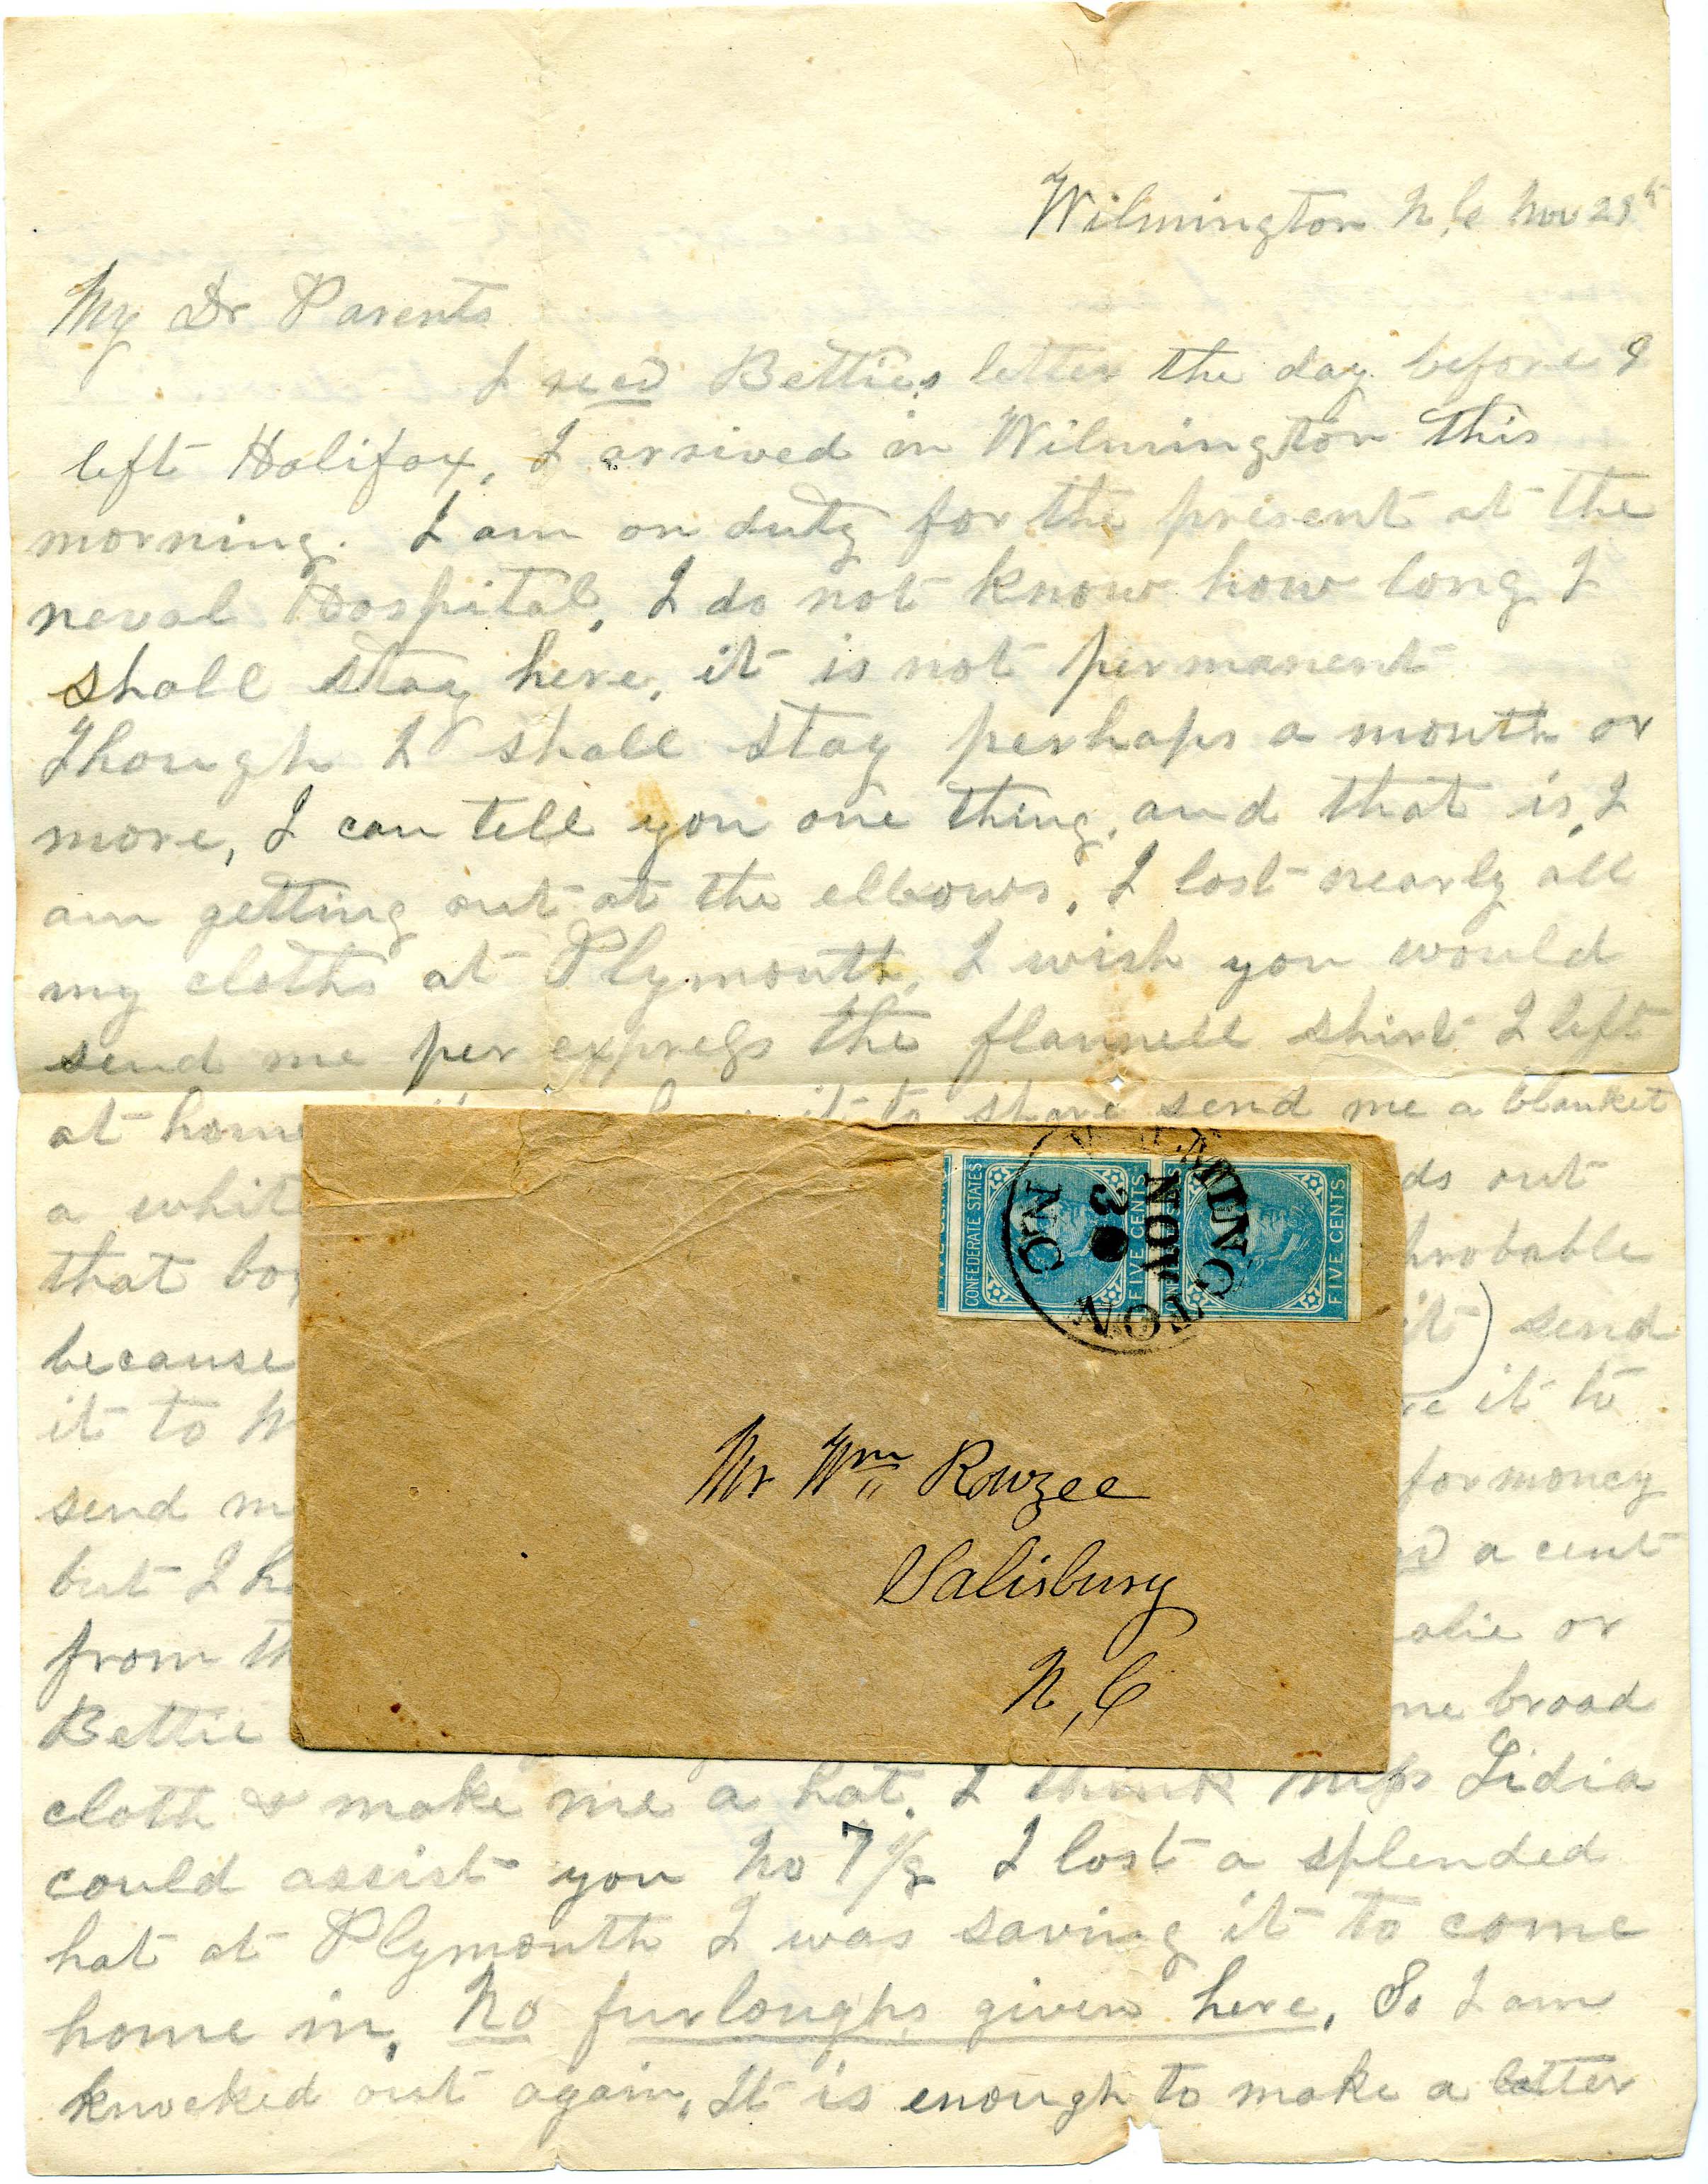 Wilmington N,C Nov 29th
My Dr Parents
I recd Betties letter the day before I
left Halifax, I arrived in Wilmington this
morning. I am on duty for the present at the
neval Hospital, I do not know how long I
shall stay here, it is not permanent
Though I shall stay perhaps a month or
more, I can tell you one thing, and that is, I
am getting out at the elbows, I lost nearly all
my cloths at Plymouth, I wish you would
send me per express the flannell shirt I left
at home it to share send me a blanket
a white ds out
that boy probable
because it) send
it to it to
send m for money
but I ha a cent
from th or
Bettie me broad
cloth & make me a hat. I think Miss Lidia
could assist you No 7 1/8 I lost a splended
hat at Plymouth I was saving it to come
home in, No furloughs given here, So I am
knocked out again, It is enough to make a better
CONFEDERATE STATES
FIVE CENTS
FIVE CENTS
WILMINGTON
NOV
30
N.C
Mr Wm Rowzee
Salisbury
N,C